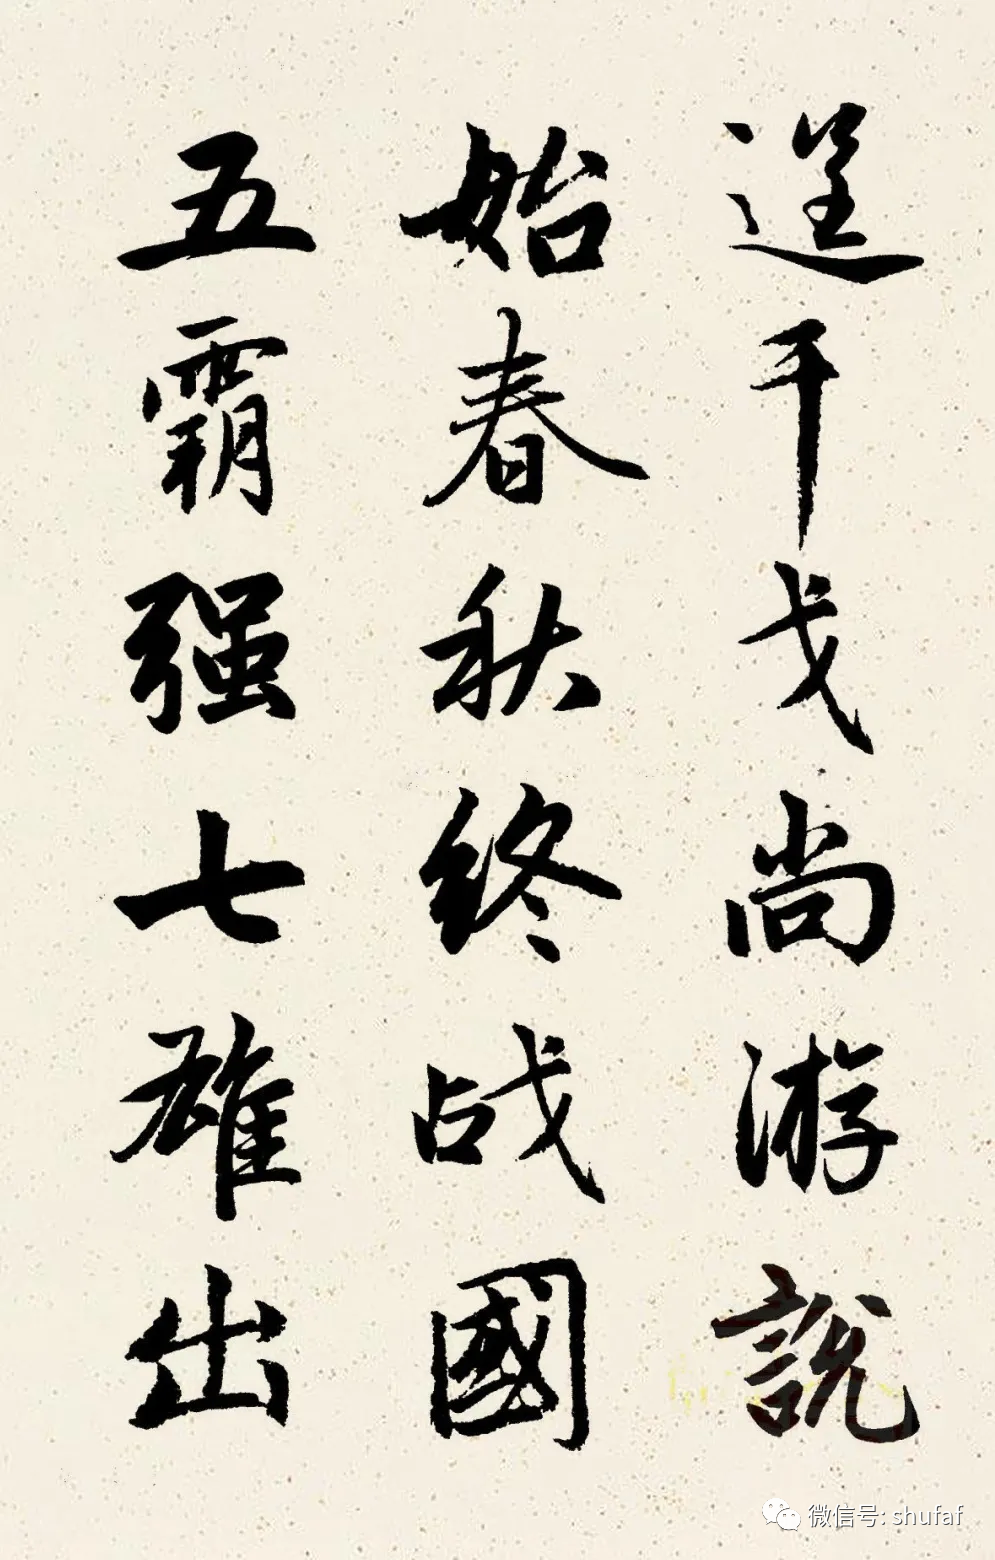 逞干戈尚游說
始春秋终战國
五霸强七雄出
微信号: shufaf